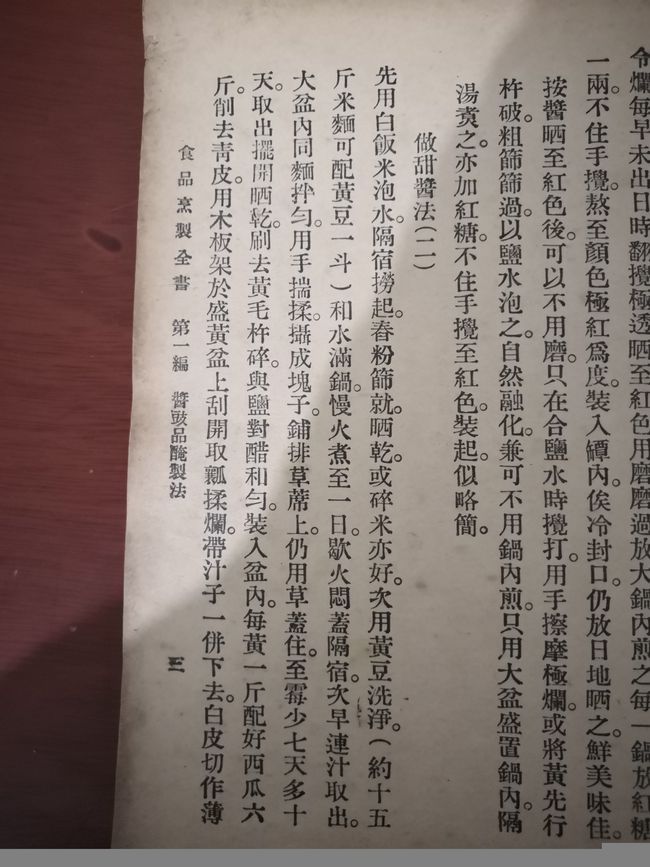 令爛每早未出日時翻攪極透晒至紅色用磨磨過放大鍋內煎之每一鍋放紅糖
一兩不住手攪。熬至顏色極紅爲度。裝入罈內。俟冷封口。仍放日地晒之。鮮美味佳。
按醬晒至紅色後。可以不用磨。只在合鹽水時攪打。用手擦摩極爛。或將黃先行
杵破。粗篩篩過。以鹽水泡之。自然融化。兼可不用鍋內煎。只用大盆盛置鍋內。隔
湯煑之。亦加紅糖。不住手攪至紅色裝起。似略簡。
做甜醬法(二)
先用白飯米泡水。隔宿撈起。舂粉篩就。晒乾。或碎米亦好。次用黃豆洗淨。(約十五
斤米麵可配黃豆一斗)和水滿鍋。慢火煮至一日。歇火悶蓋隔宿。次早連汁取出。
大盆內同麵拌勻。用手揣揉。攝成塊子。鋪排草蓆上。仍用草蓋住。至霉少七天多十
天。取出擺開晒乾。刷去黃毛杵碎。與鹽對醋和勻。裝入盆內。每黃一斤配好西瓜六
斤。削去靑皮。用木板架於盛黃盆上刮開取瓤揉爛。帶汁子一併下去。白皮切作薄
食品烹製全書 第一編 醬豉品醃製法 三